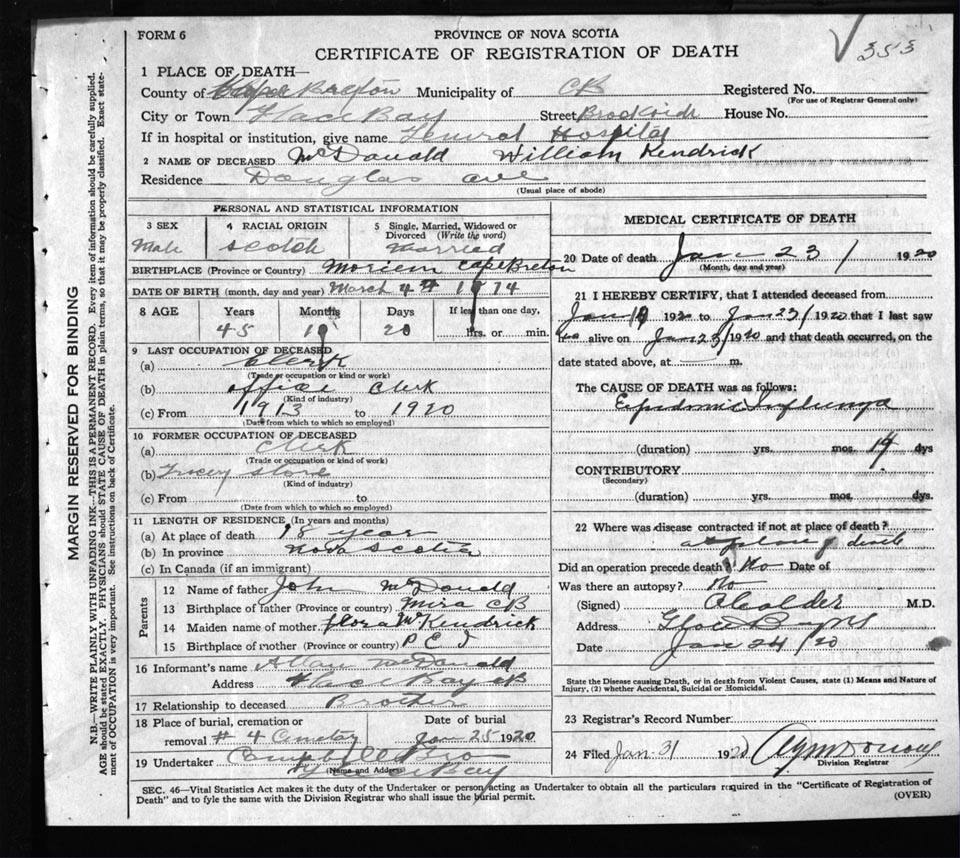 FORM 6
353
PROVINCE OF NOVA SCOTIA
CERTIFICATE OF REGISTRATION OF DEATH
1 PLACE OF DEATH—
County of Cape Breton Municipality of CB Registered No.
(For use of Registrar General only)
City or Town Glace Bay Street Brookside House No.
If in hospital or institution, give name General Hospital
2 NAME OF DECEASED McDonald William Kendrick
Residence Douglas ave
(Usual place of abode)
PERSONAL AND STATISTICAL INFORMATION
3 SEX 4 RACIAL ORIGIN 5 Single, Married, Widowed or Divorced (Write the word)
Male Scotch Married
BIRTHPLACE (Province or Country) Morien Cape Breton
DATE OF BIRTH (month, day and year) March 4th 1874
8 AGE Years Months Days If less than one day,
45 10 20 hrs. or min.
9 LAST OCCUPATION OF DECEASED
(a) Clerk
(Trade or occupation or kind or work)
(b) office Clerk
(Kind of industry)
(c) From 1913 to 1920
(Date from which to which so employed)
10 FORMER OCCUPATION OF DECEASED
(a) Clerk
(Trade or occupation or kind of work)
(b) store
(Kind of industry)
(c) From to
(Date from which to which so employed)
11 LENGTH OF RESIDENCE (In years and months)
(a) At place of death 18 year
(b) In province Nova Scotia
(c) In Canada (if an immigrant)
Parents
12 Name of father John McDonald
13 Birthplace of father (Province or country) Mira CB
14 Maiden name of mother Flora McKendrick
15 Birthplace of mother (Province or country) P E I
16 Informant's name Allan McDonald
Address Glace Bay CB
17 Relationship to deceased Brother
18 Place of burial, cremation or removal # 4 Cemetery Date of burial Jan 25 1920
19 Undertaker
(Name and Address) Glace Bay
MEDICAL CERTIFICATE OF DEATH
20 Date of death Jan 23 / 1920
(Month, day and year)
21 I HEREBY CERTIFY, that I attended deceased from
Jan 1920 to Jan 23/ 1920 that I last saw
alive on Jan 23/ 1920 and that death occurred, on the
date stated above, at m.
The CAUSE OF DEATH was as follows:
Epidemic Influenza
(duration) yrs. mos. 14 dys
CONTRIBUTORY
(Secondary)
(duration) yrs. mos. dys.
22 Where was disease contracted if not at place of death?
at place of death
Did an operation precede death? No Date of
Was there an autopsy? No
(Signed) M.D.
Address Glace Bay NS
Date Jan 24/20
State the Disease causing Death, or in death from Violent Causes, state (1) Means and Nature of
Injury, (2) whether Accidental, Suicidal or Homicidal.
23 Registrar's Record Number
24 Filed Jan-31 1920
Division Registrar
SEC. 46—Vital Statistics Act makes it the duty of the Undertaker or person acting as Undertaker to obtain all the particulars required in the "Certificate of Registration of
Death" and to fyle the same with the Division Registrar who shall issue the burial permit.
(OVER)
MARGIN RESERVED FOR BINDING
N.B.—WRITE PLAINLY WITH UNFADING INK—THIS IS A PERMANENT RECORD. Every item of information should be carefully supplied.
AGE should be stated EXACTLY. PHYSICIANS should STATE CAUSE OF DEATH in plain terms, so that it may be properly classified. Exact statement of OCCUPATION is very important. See instructions on back of Certificate.